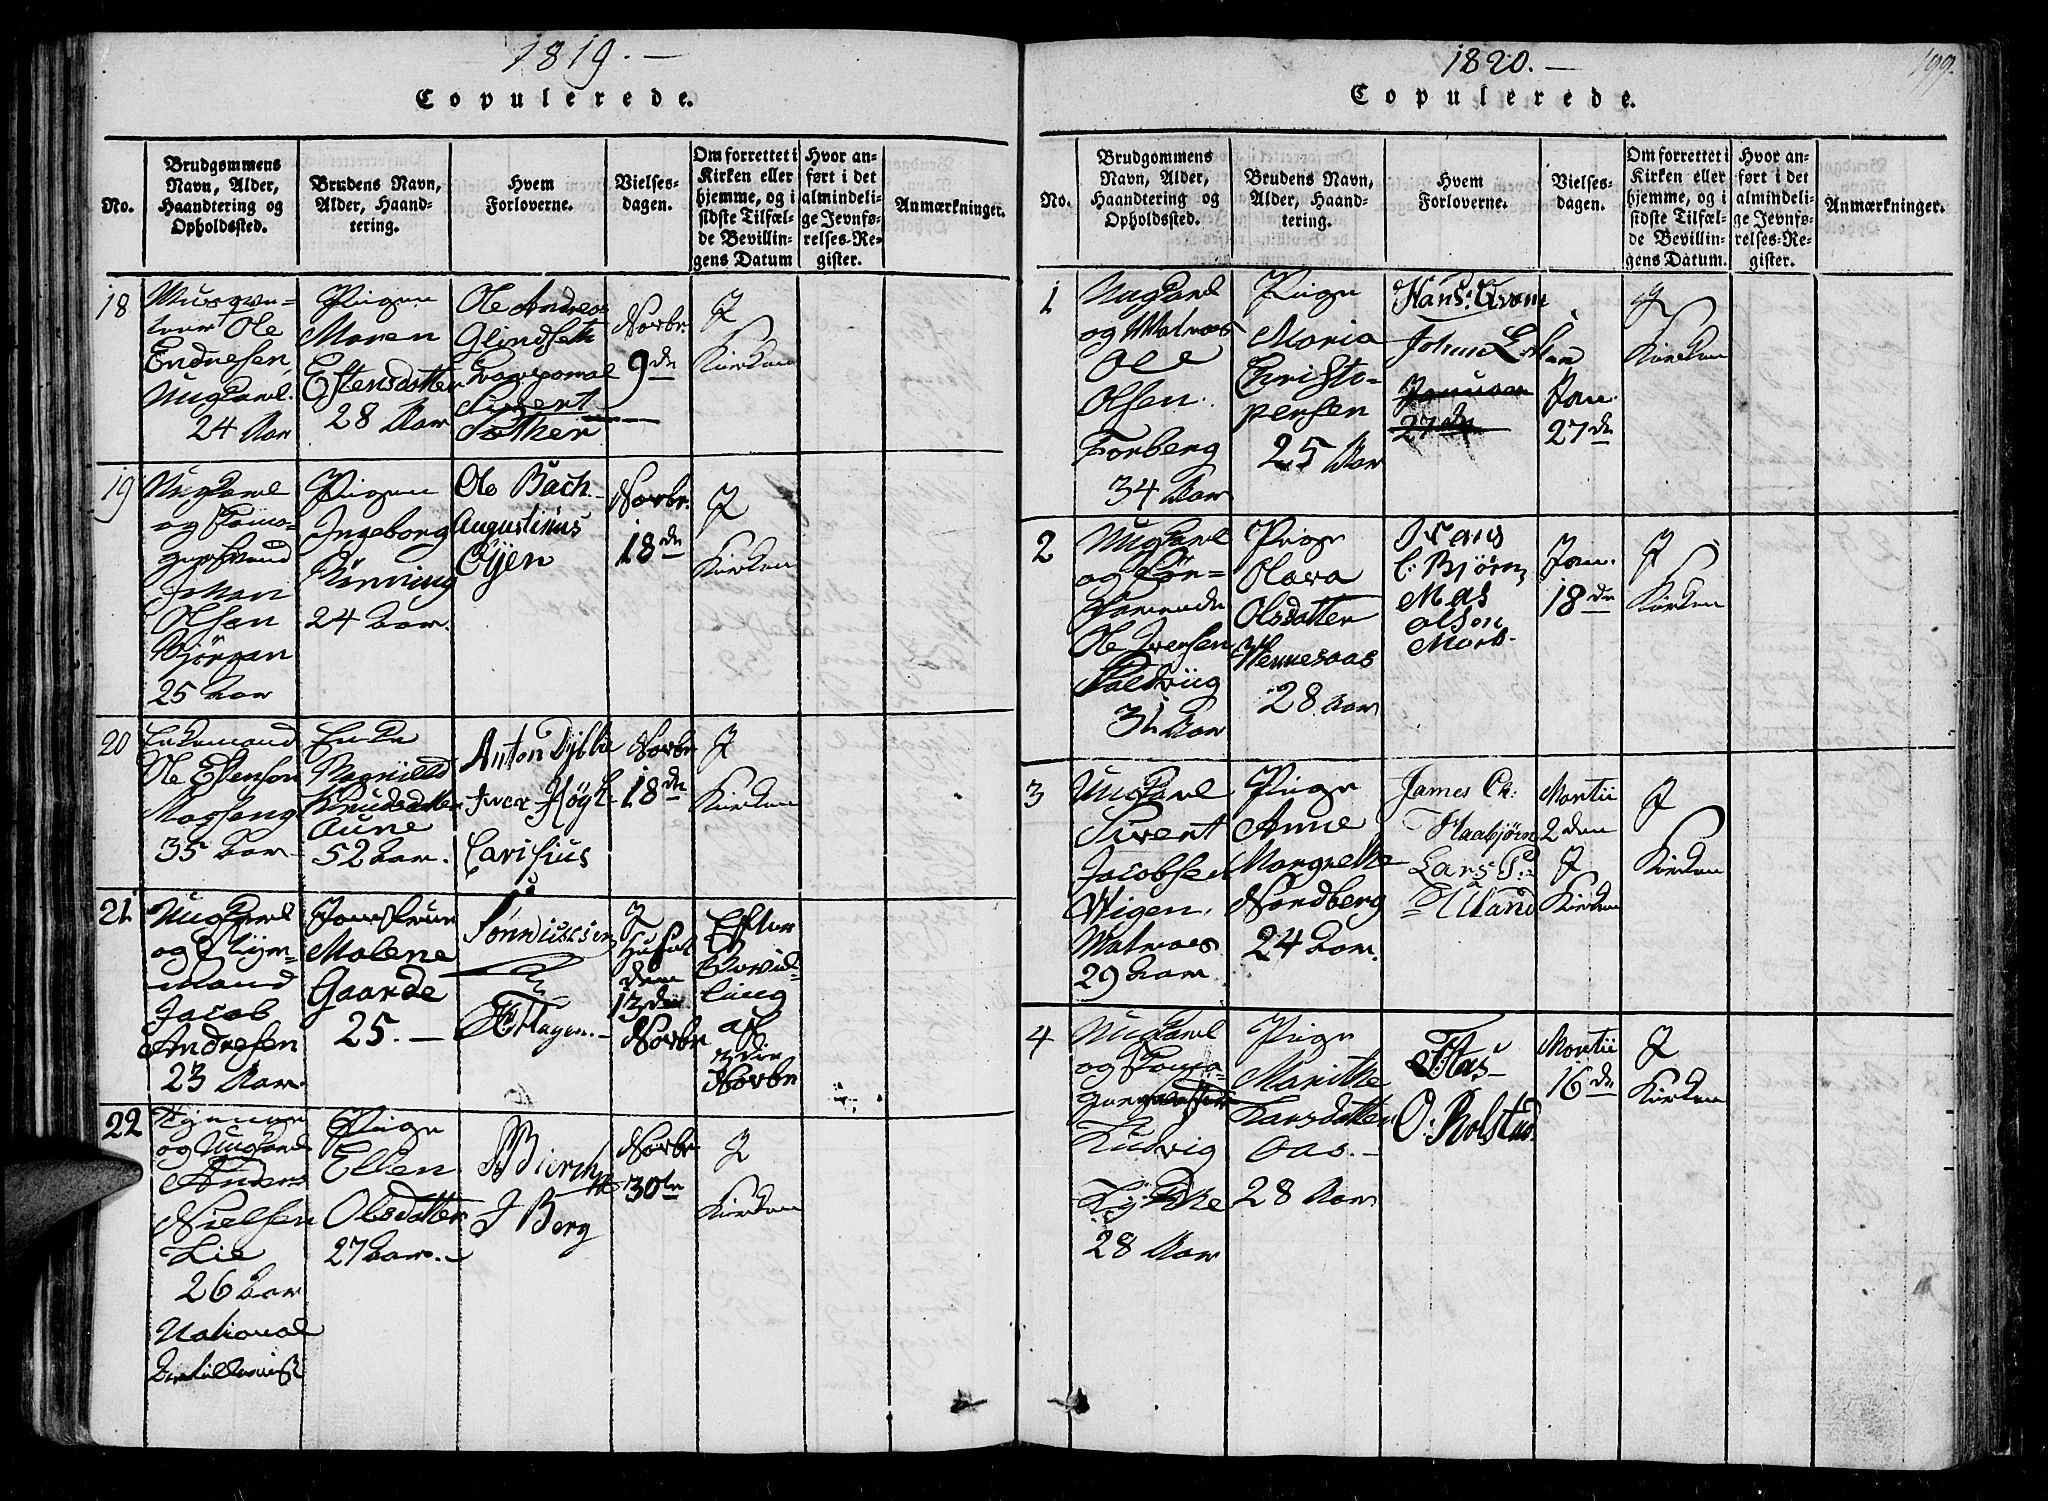 1819. —
Copulerede.
No.
Brudgommens
Navn, Alder,
Haandtering og
Opholdssted.
Brudens Navn,
Alder, Haand-
tering.
Hvem
Forloverne.
Vielses-
dagen.
Om forrettet i
Kirken eller
hjemme, og i
sidste Tilfæl-
de Bevillin-
gens Datum
Hvor an-
ført i det
almindeli-
ge Jevnfø-
relses-Re-
gister.
Anmærkninger.
18
Ole
Endresen,
Ungkarl.
24 Aar
Pigen
Maren
Estensdatter
28 Aar
Ole Andreas
Glindseth
Sivert
Novbr
9de
I
Kirken
19
Ungkarl
Johan
Olsen
Bjørgan
25 Aar
Pigen
Ingeborg
Rønning
24 Aar.
Ole Bach
Augustinus
Øyen
Novbr.
18de
I
Kirken
20
Enkemand
Ole Estenson
35 Aar
Enke
Ragnild
Knudsdatter
Aune
52 Aar.
Anton Dyblie
Iver Høyh
Carisius
Novbr
18de
I
Kirken
21
Ungkarl
og
Jacob
Andresen
23 Aar.
Jomfrue
Malene
Gaarde
25. —
Hagen. —
I
Huset
den
13de
Novbr
Efter
Bevil-
ling
af
3die
Novbr
22
og Ungkarl
Anders
Nielsen
Lie
26 Aar
National
Pige
Ellen
Olsdatter
27 Aar. —
J Berg
Novbr
30te
I
Kirken
1820. —
199.
Copulerede.
No.
Brudgommens
Navn, Alder,
Haandtering og
Opholdssted.
Brudens Navn,
Alder, Haand-
tering.
Hvem
Forloverne.
Vielses-
dagen.
Om forrettet i
Kirken eller
hjemme, og i
sidste Tilfæl-
de Bevillin-
gens Datum.
Hvor an-
ført i det
almindeli-
ge Jevnfø-
relses-Re-
gister.
Anmærkninger.
1
Ungkarl
og Matroes
Ole
Olsen.
Forberg
34 Aar
Pige
Maria
Christo-
persen
25 Aar
Januar
27de
Jan.
27de
I
Kirken
2
Ungkarl
og
Ole Iversen
31 Aar
Pige
Olava
Olsdatter
Hennesaas
28 Aar
C: Bjørn,
Mas
Olsen
Jan.
18de
I
Kirken
3
Ungkarl
Sivert
Jacobsen
Wigen,
Matroes
29 Aar
Pige
Anne
Margrethe
Nordberg
24 Aar.
James Ch:
Haabjørn
Lars P:
Martii
2den
I
Kirken
I
Kirken
4
Ungkarl
Ludvig
28 Aar
Pige
Marithe
Larsdatter
Aas. —
28 Aar
O: Rolstad
Martii
16de
I
Kirken